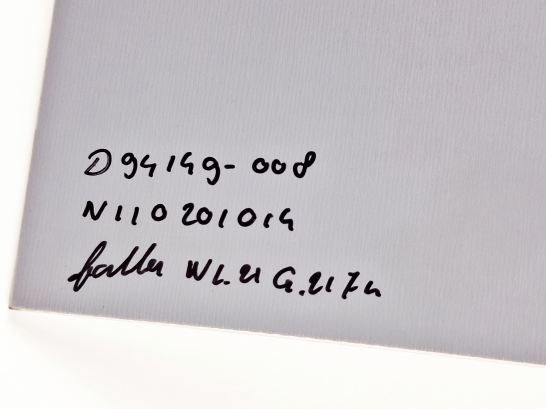 D 94149-008
N110201014
faller WL.21 G.217n